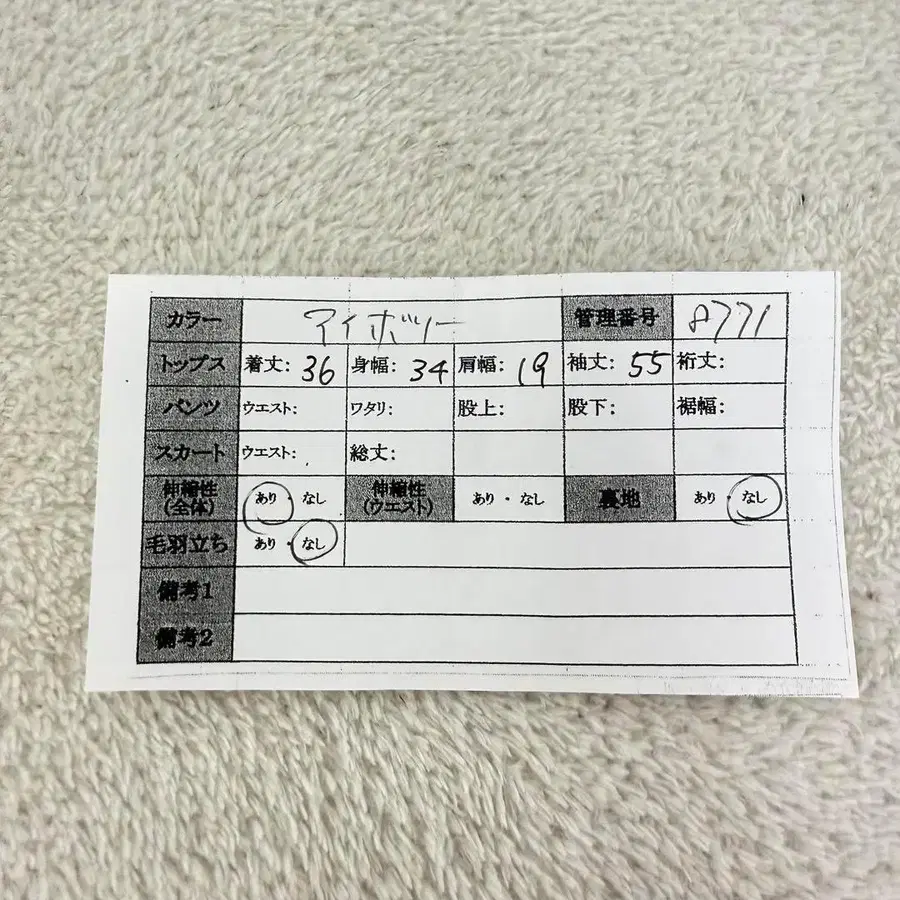 カラー アイボリー 管理番号 8771
トップス 着丈: 36 身幅: 34 肩幅: 19 袖丈: 55 裄丈:
パンツ ウエスト: ワタリ: 股上: 股下: 裾幅:
スカート ウエスト: 総丈:
伸縮性 (全体) あり・なし 伸縮性 (ウエスト) あり・なし 裏地 あり・なし
毛羽立ち あり・なし
備考1
備考2